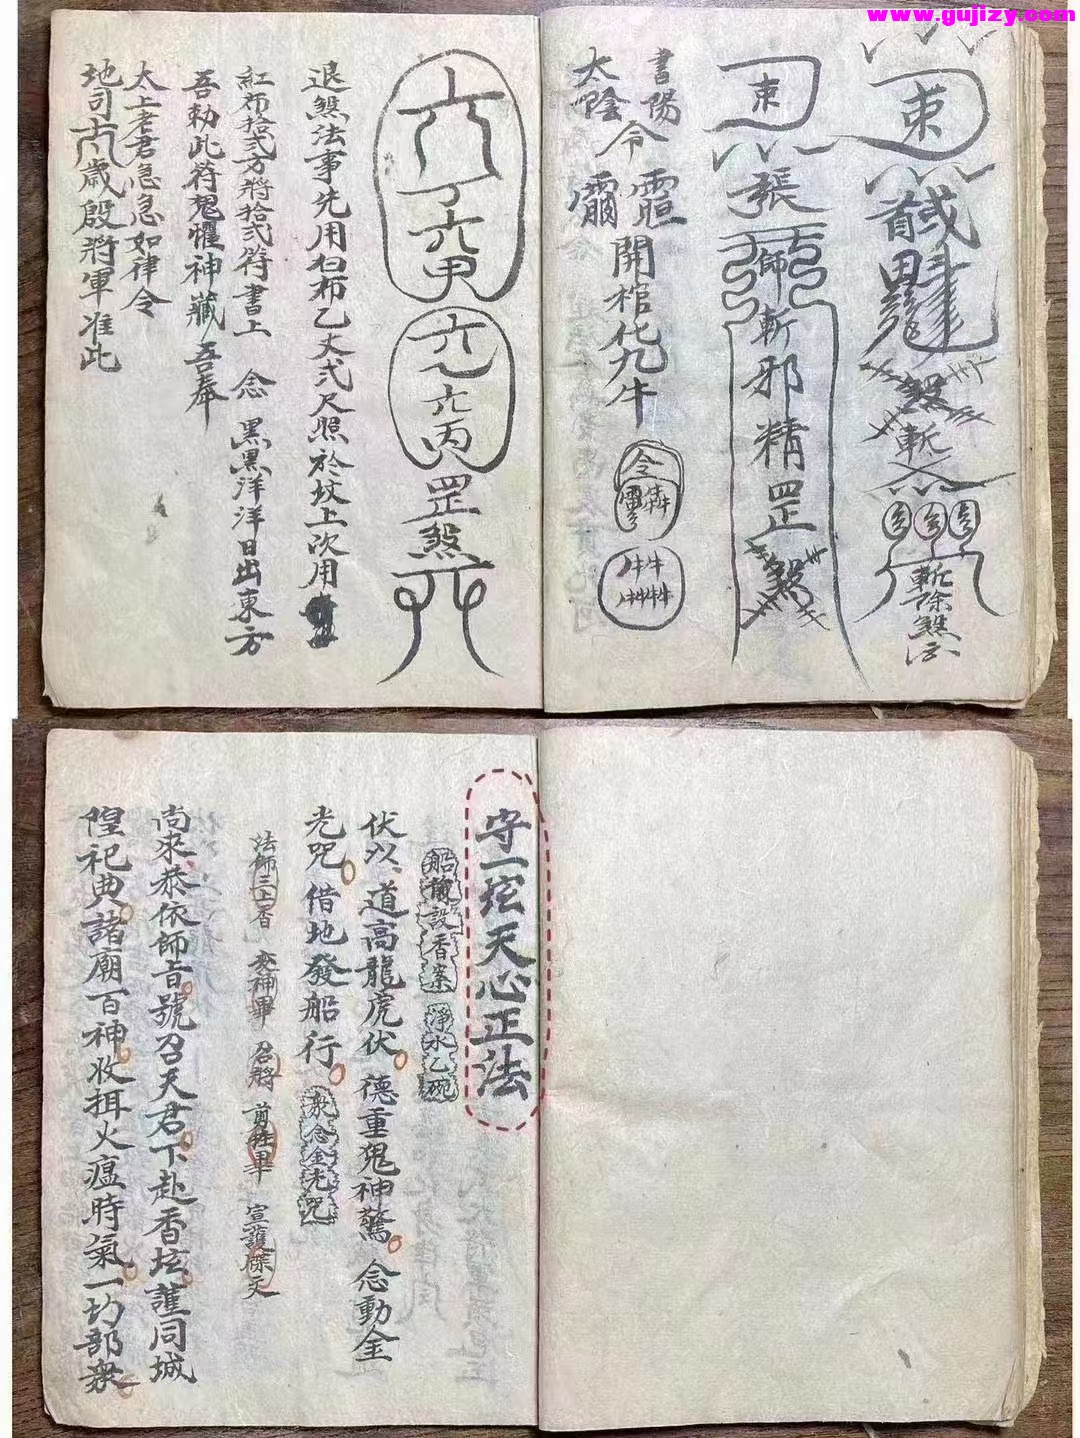 www.gujizy.com
束
斬
斬除煞
束
張
師斬邪精罡煞
書陽
太陰
令
開棺化九牛
令
六丁六甲
六乙六丙罡煞
退煞法事先用白布乙丈弍尺照於坟上次用
紅布拾弍方將拾弍符書上 念 黑黑洋洋日出東方
吾勅此符鬼懼神藏 吾奉
太上老君急急如律令
地司太歲殷將軍准此
守一坛天心正法
船前設香案 淨水乙碗
伏以、道高龍虎伏。德重鬼神驚。念動金
光咒。借地發船行。衆念金光咒
法師三上香 安神畢 召將 剪牲畢 宣護牒文
尚來、恭依師旨。號召天君。下赴香坛。護同城
隍祀典。諸廟百神。收揖火瘟。時氣一切部衆。